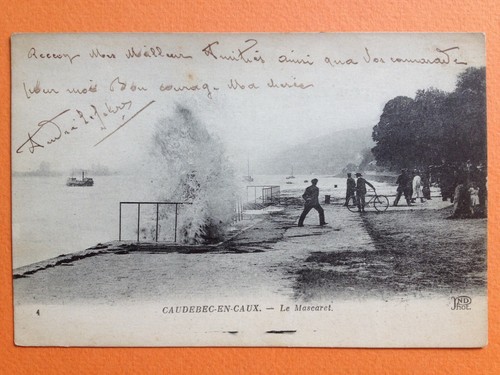 Recevez Mes Meilleur Amitiés ainsi que Vos camarade
pour moi Bon courage Ma chérie
André
4 CAUDEBEC-EN-CAUX. — Le Mascaret.
ND Phot.